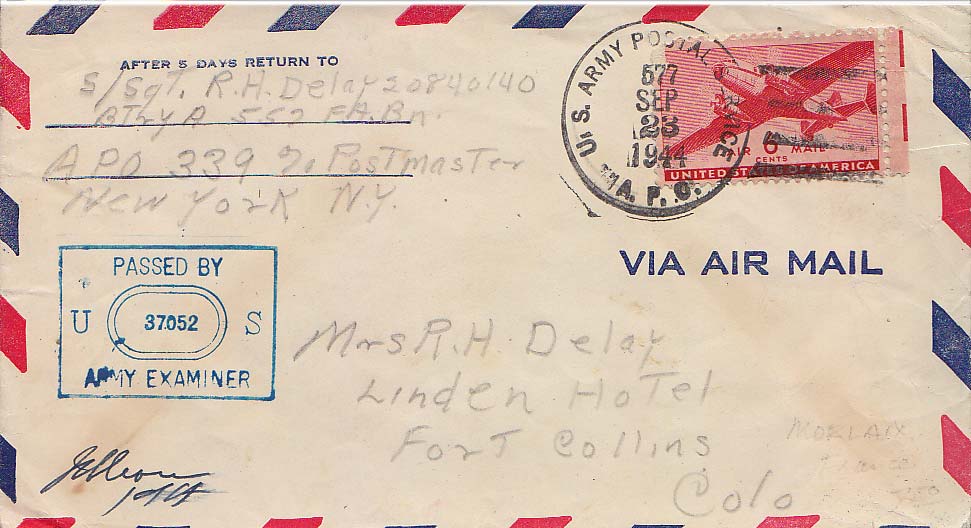 AFTER 5 DAYS RETURN TO
S/Sgt. R.H. Delay 20840140
BTry A 552 FA. Bn.
APO 339 % PostMaster
New York N.Y.
U. S. ARMY POSTAL SERVICE
577
SEP
23
1944
A. P. O.
AIR 6 MAIL
CENTS
UNITED STATES OF AMERICA
VIA AIR MAIL
PASSED BY
U 37052 S
ARMY EXAMINER
Mrs R.H. Delay
Linden Hotel
Fort Collins
Colo
MORLAIX
France